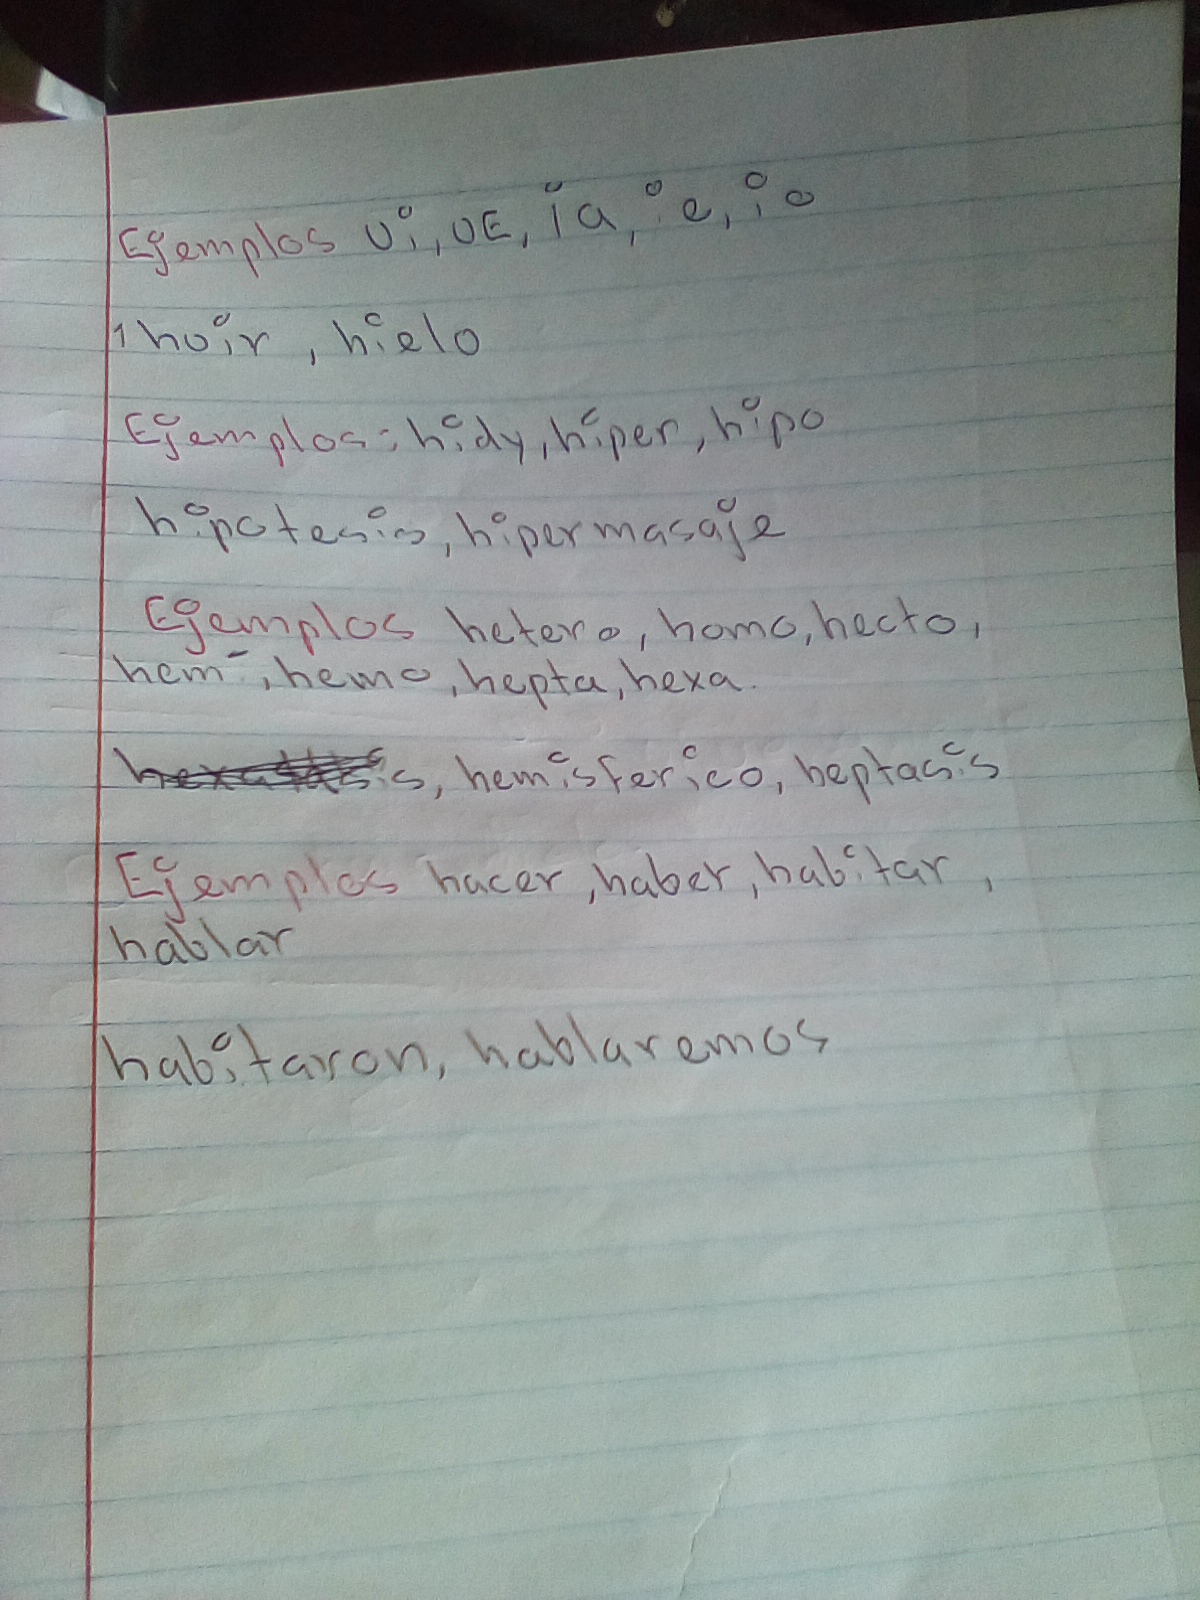 Ejemplos Ui, UE, ia, ie, io
1 huir, hielo
Ejemplos: hidy, hiper, hipo
hipotesis, hipermasaje
Ejemplos hetero, homo, hecto,
hem-, hemo, hepta, hexa.
hemisferico, heptasis
Ejemplos hacer, haber, habitar,
hablar
habitaron, hablaremos